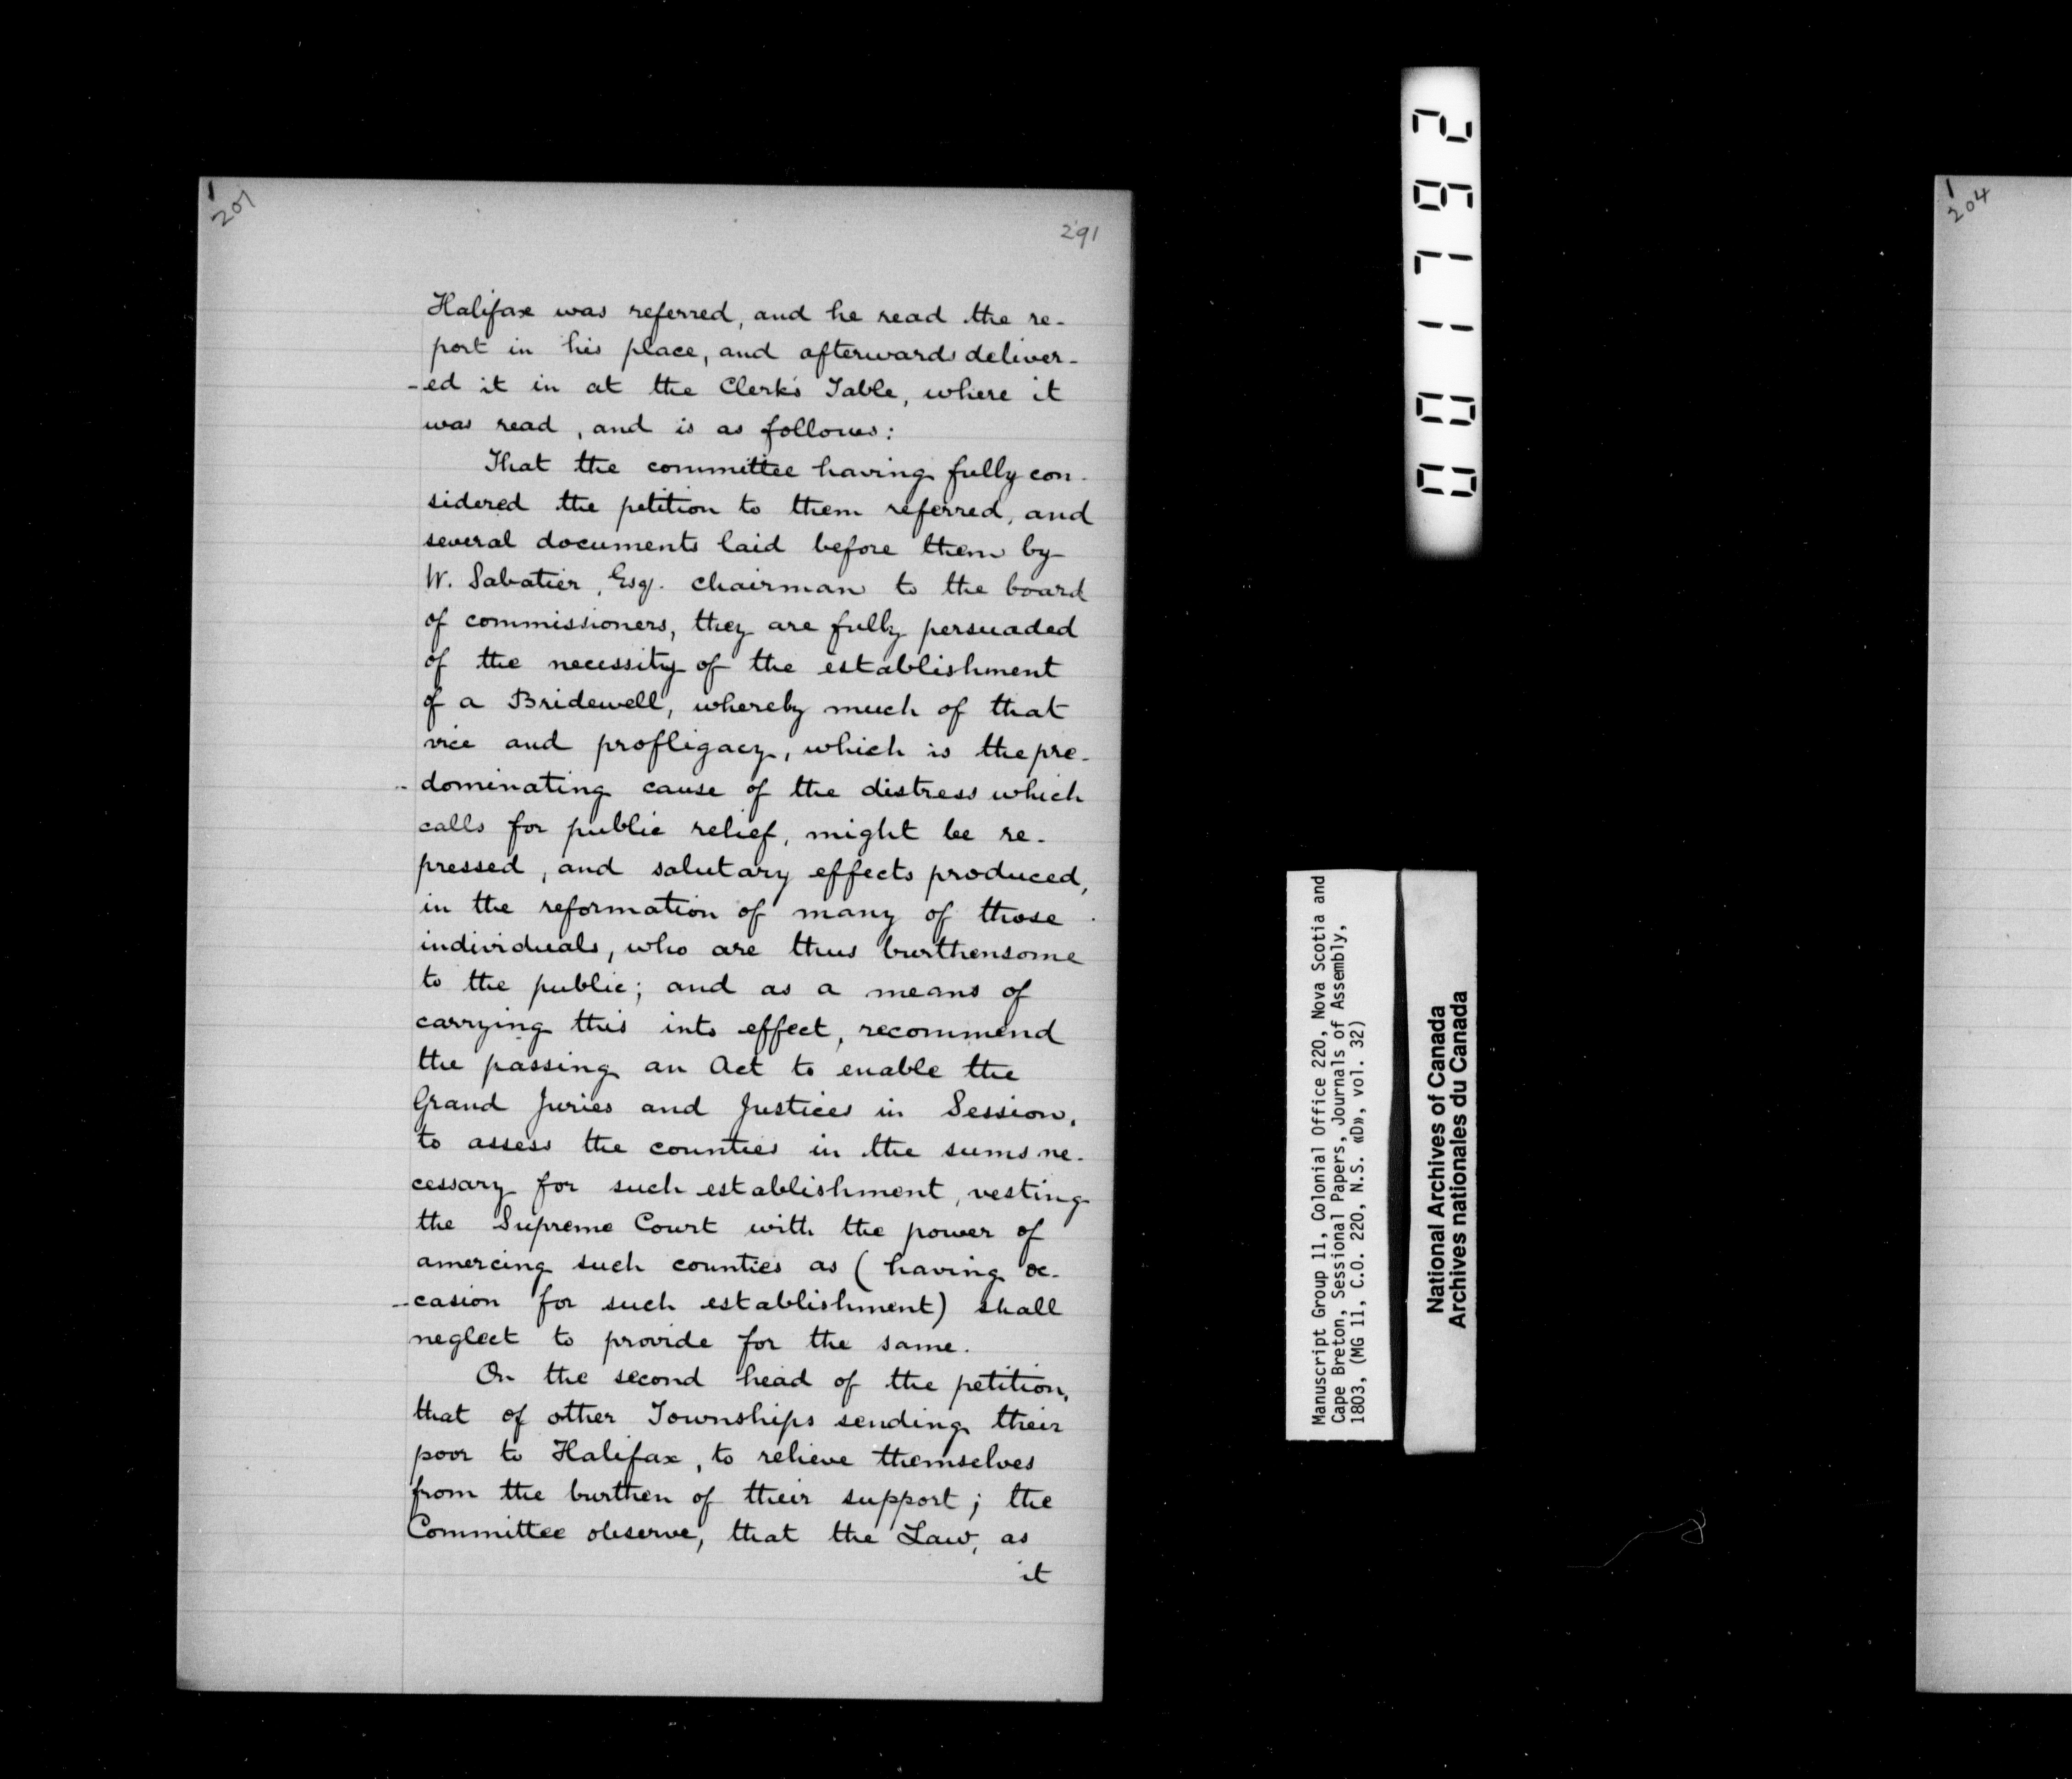 201
291
Halifax was referred, and he read the re-
port in his place, and afterwards deliver-
-ed it in at the Clerk's Table, where it
was read, and is as follows:
That the committee having fully con-
sidered the petition to them referred, and
several documents laid before them by
W. Sabatier, Esq. chairman to the board
of commissioners, they are fully persuaded
of the necessity of the establishment
of a Bridewell, whereby much of that
vice and profligacy, which is the pre-
-dominating cause of the distress which
calls for public relief, might be re-
pressed, and salutary effects produced,
in the reformation of many of those
individuals, who are thus burthensome
to the public; and as a means of
carrying this into effect, recommend
the passing an Act to enable the
Grand Juries and Justices in Session,
to assess the counties in the sums ne-
cessary for such establishment, vesting
the Supreme Court with the power of
amercing such counties as (having oc-
-casion for such establishment) shall
neglect to provide for the same.
On the second head of the petition,
that of other Townships sending their
poor to Halifax, to relieve themselves
from the burthen of their support; the
Committee observe, that the Law, as
it
Manuscript Group 11, Colonial Office 220, Nova Scotia and
Cape Breton, Sessional Papers, Journals of Assembly,
1803, (MG 11, C.O. 220, N.S. «D», vol. 32)
National Archives of Canada
Archives nationales du Canada
204